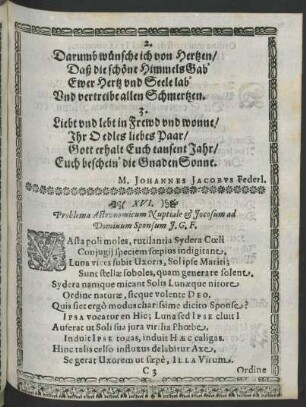 2.
Darumb wünsche ich von Hertzen/
Daß die schöne Himmels Gab
Ewer Hertz vnd Seele lab'
Vnd vertreibe allen Schmertzen.
3.
Liebt vnd lebt in Frewd vnd wonne/
Ihr O edles liebes Paar/
Gott erhalt Euch tausent Jahr/
Euch beschein' die Gnaden Sonne.
M. JOHANNES JACOBUS Federl.
XVI.
Problema Astronomicum Nuptiale & Jocosum ad
Dominum Sponsum J. G. F.
VAsta poli moles, rutilantia Sydera Cœli
Conjugij speciem sœpius indigitant,
Luna vices subit Uxoris, Sol ipse Mariti;
Sunt stellæ soboles, quam generare solent,
Sydera namque micant Solis Lunæque nitore
Ordine naturæ, sicque volente DEO.
Quis fiet ergò modus charissime dicito Sponse?
IPSA vocator en Hic; Luna sed IPSE cluit?
Auferat ut Soli sua jura virilia Phœbe,
Induit IPSE togas, induit HÆC caligas.
Hinc talis celso influxus delabitur Axe,
Se gerat Uxorem ut sæpè, ILLA Virum.
C 3
Ordine